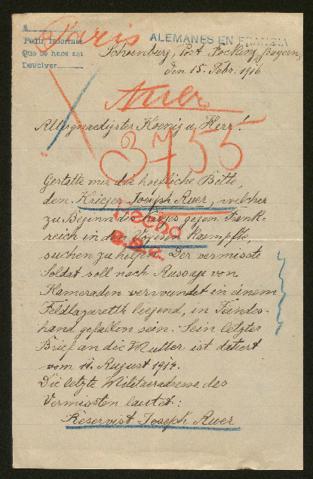 A
Paris
ALEMANES EN FRANCIA
Pedir informes
Que se hace así
Devolver
Schoenburg, Post Pocking, Bayern,
den 15. Febr. 1916
Auer
Allergnädigster Koenig u. Herr!
3755
Gestatte mir die hoefliche Bitte,
den Krieger Joseph Auer, welcher
zu Beginn des Kriegs gegen Frank-
reich in den Vogesen kaempfte,
suchen zu helfen. Der vermisste
Soldat soll nach Aussage von
Kameraden verwundet in einem
Feldlazareth liegend, in Feindes-
hand gefallen sein. Sein letzter
Brief an die Mutter ist datiert
vom 11. August 1914.
Die letzte Militäradresse des
Vermissten lautet:
Reservist Joseph Auer